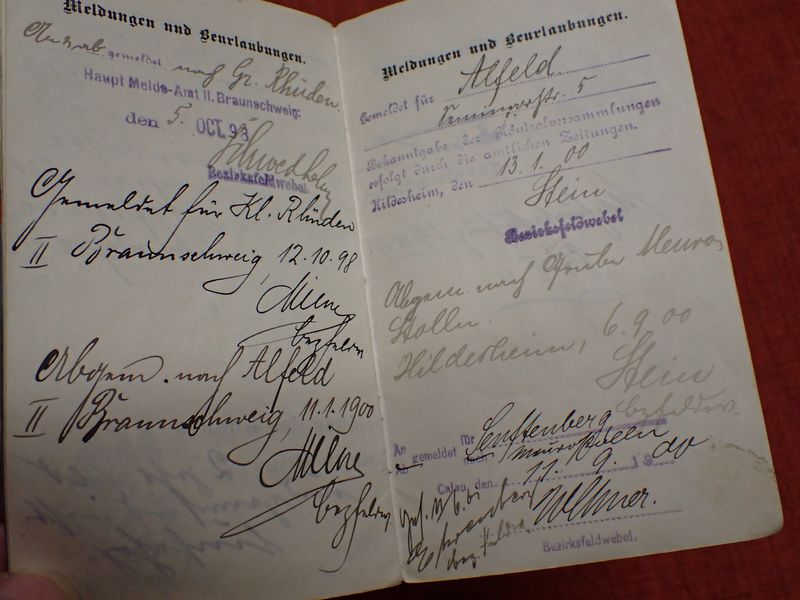 Meldungen und Beurlaubungen.
gemeldet nach Gr. Rhüden
Haupt Melde-Amt II. Braunschweig:
den 5. OCT. 98
Bezirksfeldwebel.
Gemeldet für Kl. Rhüden
II Braunschweig, 12.10.98
Milne
Bezfeldw
Abgem. nach Alfeld
II Braunschweig, 11.1.1900
Milne
Bezfeldw
Meldungen und Beurlaubungen.
Gemeldet für Alfeld
5
Bekanntgabe der Kontrolversammlungen
erfolgt durch die amtlichen Zeitungen.
Hildesheim, den 13.1.00
Stein
Bezirksfeldwebel
Abgem. nach Grube Meuro
Stolln.
Hildesheim, 6.9.00
Stein
Bezfeldw.
An gemeldet für Senftenberg
Ab nach
Calau, den 11. 9. 1900
Bezirksfeldwebel.